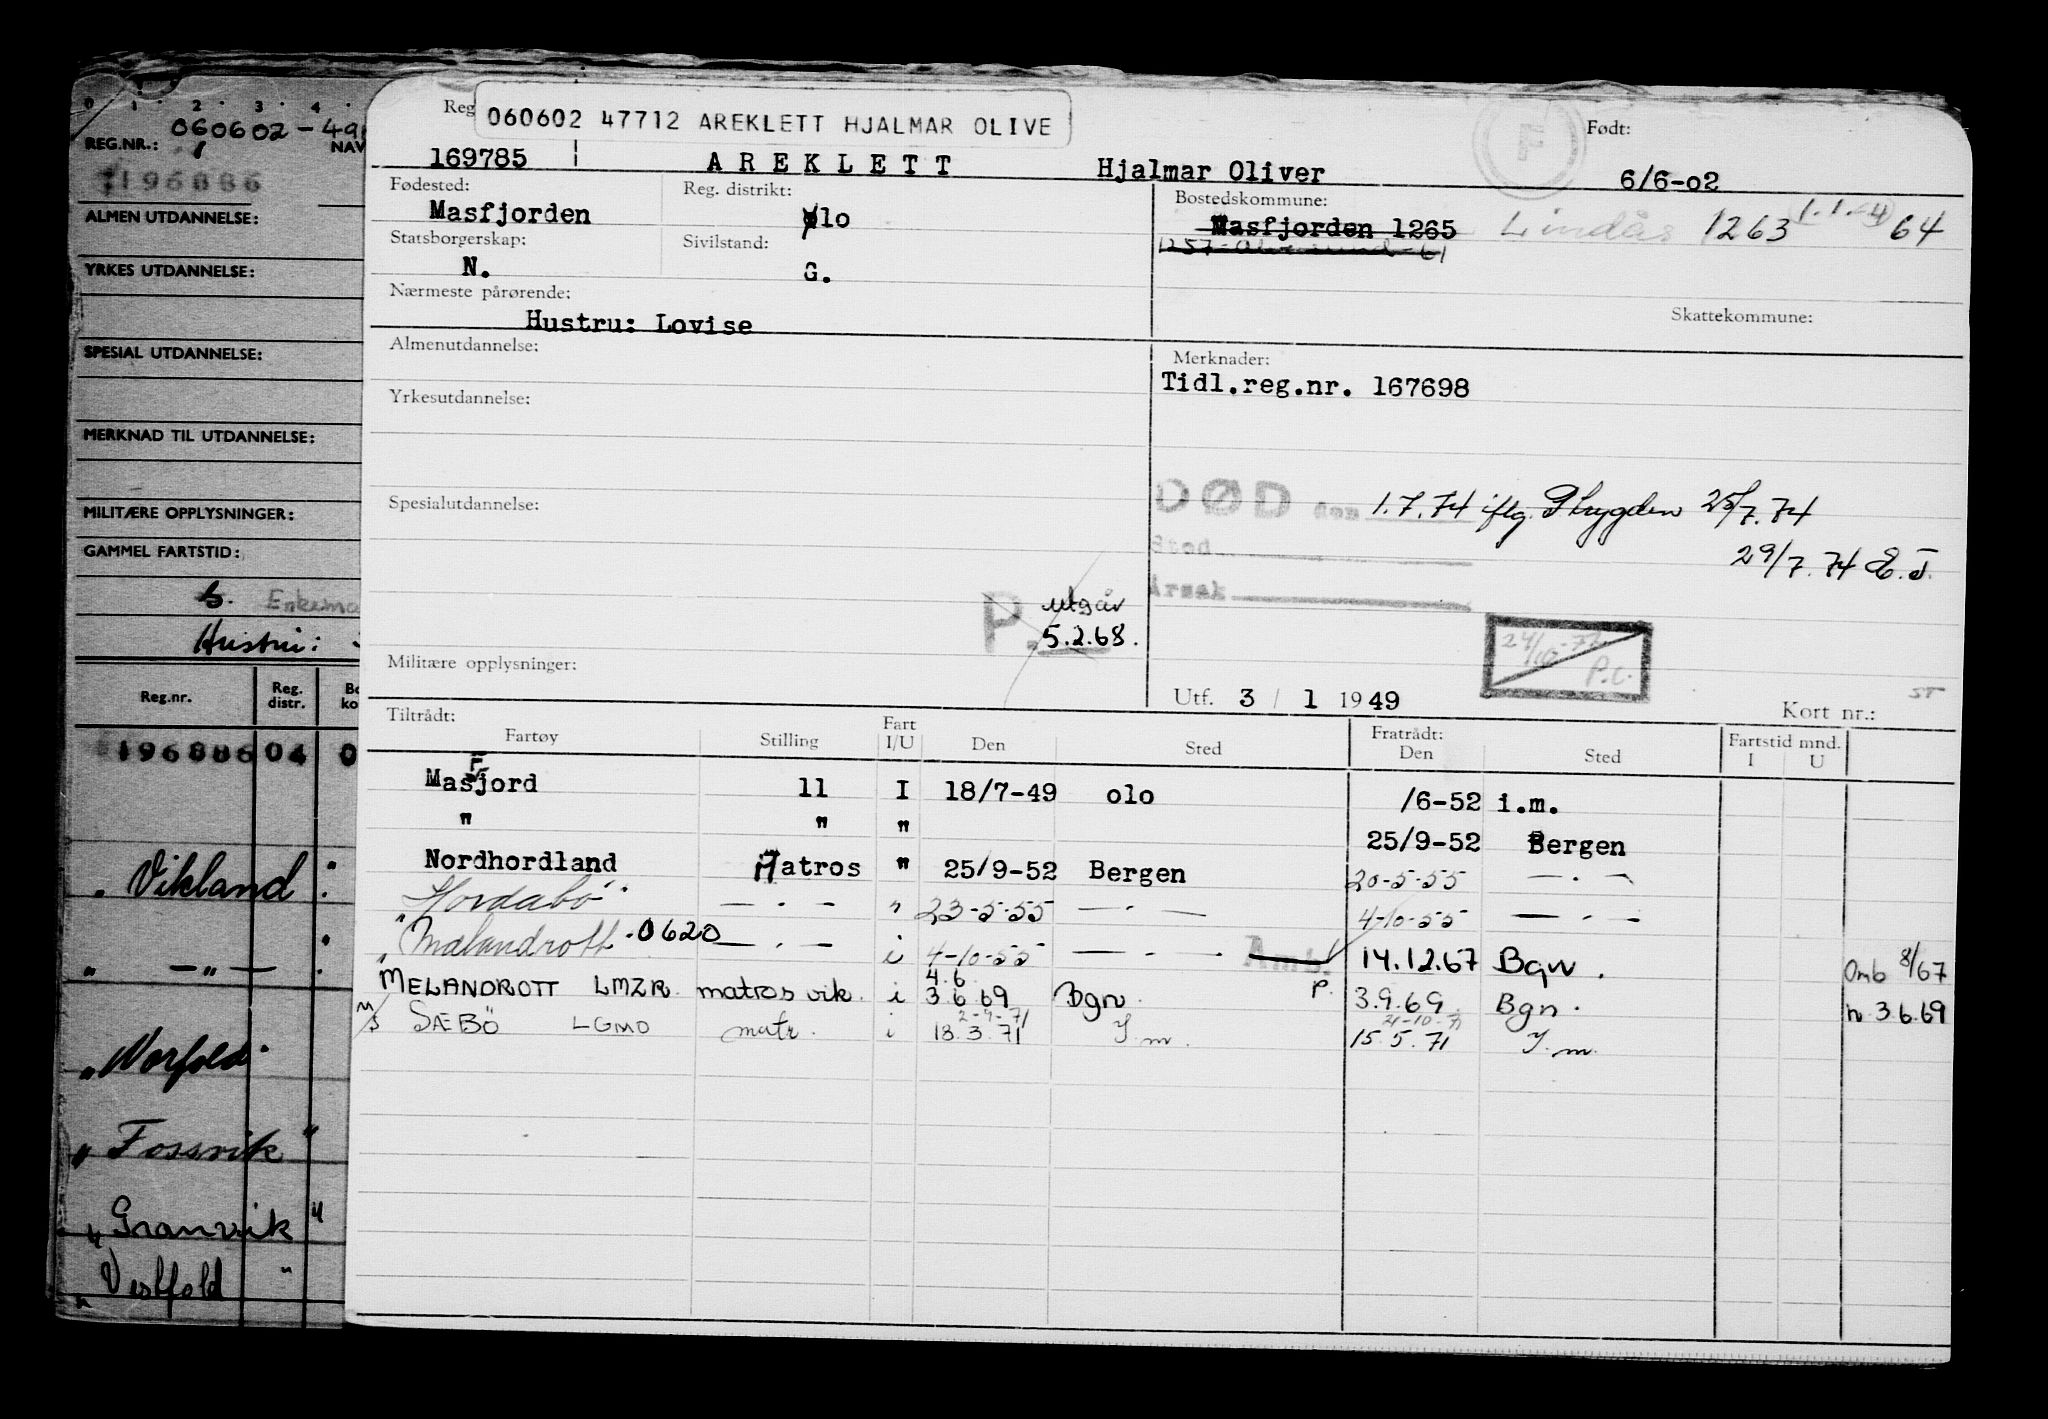 0 1 2 3 4
060602-491
REG.NR.:
NAV
196886
ALMEN UTDANNELSE:
YRKES UTDANNELSE:
SPESIAL UTDANNELSE:
MERKNAD TIL UTDANNELSE:
MILITÆRE OPPLYSNINGER:
GAMMEL FARTSTID:
Enkema
Hustru:
Reg.nr. Reg. distr. Bo ko
196886 04 0
" Vikland "
" —"— "
" Norfold "
" Fossvik "
" Granvik "
" Vestfold "
Reg
060602 47712 AREKLETT HJALMAR OLIVE
F
Født:
169785 AREKLETT Hjalmar Oliver 6/6-02
Fødested: Reg. distrikt: Bostedskommune:
Masfjorden olo Masfjorden 1265 Lindås 1263 1.1.-64
Statsborgerskap: Sivilstand:
N. G.
Nærmeste pårørende:
Hustru: Lovise
Skattekommune:
Almenutdannelse:
Merknader:
Tidl.reg.nr. 167698
Yrkesutdannelse:
Spesialutdannelse:
DØD den 1.7.74 iflg. P.trygden 25/7.74
Sted
29/7.74 E.J.
Årsak
P. utgår
5.2.68.
24/10-72
P.C.
Militære opplysninger:
Utf. 3 / 1 1949
ST
Kort nr.:
Tiltrådt: Fratrådt: Fartstid mnd.
Fartøy Stilling Fart I/U Den Sted Den Sted I U
Masfjord 11 I 18/7-49 olo /6-52 i.m.
" " " 25/9-52 Bergen
Nordhordland Matros " 25/9-52 Bergen 20-5-55 — " —
" Hordabø — " — " 23-5-55 — " — 4-10-55 — " —
" Melandrott 0620 — " — i 4-10-55 — " — Amb. 14.12.67 Bgn. Omb 8/67
MELANDROTT LMZR matros vik. i 4.6 3.6.69 Bgn. P. 3.9.69 Bgn. n 3.6.69
2-9-71 21-10-71
M/S SÆBÖ LGMO matr. i 18.3.71 I.m. 15.5.71 I.m.